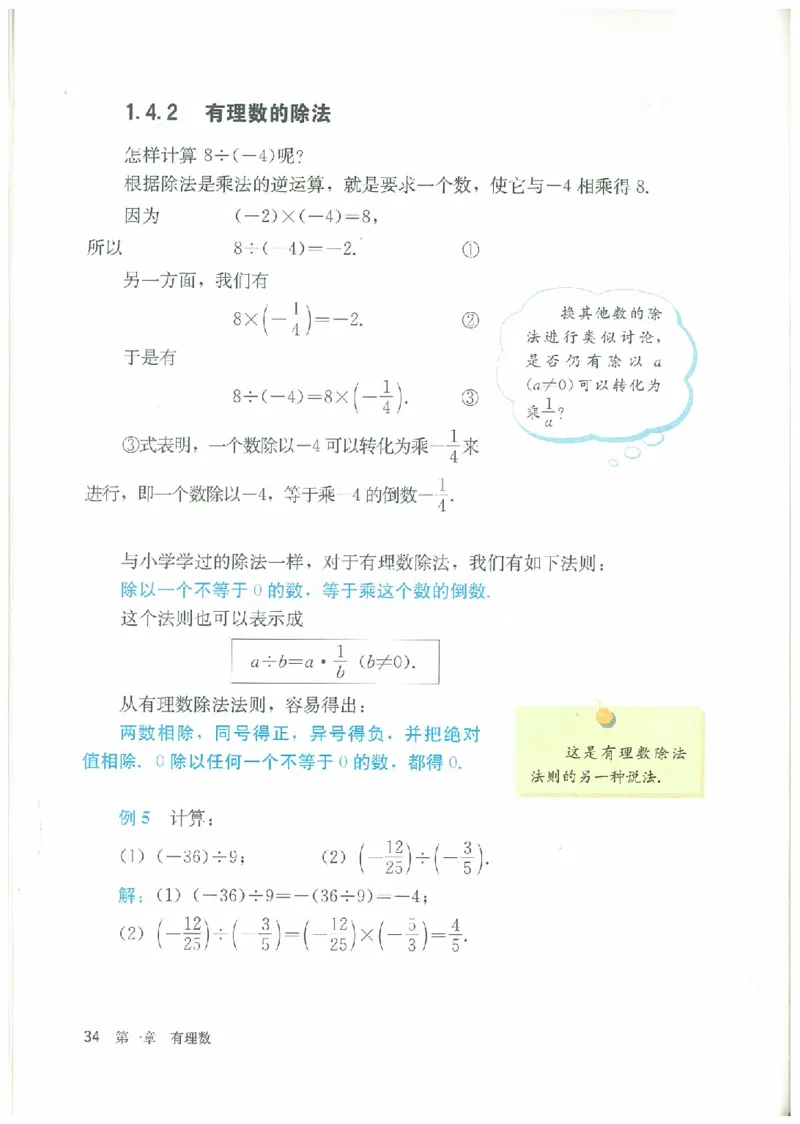 1.4.2 有理数的除法
怎样计算 8÷(−4)呢?
根据除法是乘法的逆运算，就是要求一个数，使它与−4 相乘得 8.
因为 (−2)×(−4)=8,
所以 8÷(−4)=−2. ①
另一方面，我们有
8×(−1/4)=−2. ②
于是有
8÷(−4)=8×(−1/4). ③
换其他数的除
法进行类似讨论，
是否仍有除以 a
(a≠0)可以转化为
乘1/a?
③式表明，一个数除以−4 可以转化为乘−1/4来
进行，即一个数除以−4，等于乘−4 的倒数−1/4.
与小学学过的除法一样，对于有理数除法，我们有如下法则：
除以一个不等于 0 的数，等于乘这个数的倒数.
这个法则也可以表示成
a÷b=a·1/b (b≠0).
从有理数除法法则，容易得出：
两数相除，同号得正，异号得负，并把绝对
值相除. 0 除以任何一个不等于 0 的数，都得 0.
这是有理数除法
法则的另一种说法.
例 5 计算：
(1) (−36)÷9; (2) (−12/25)÷(−3/5).
解：(1) (−36)÷9=−(36÷9)=−4;
(2) (−12/25)÷(−3/5)=(−12/25)×(−5/3)=4/5.
34 第一章 有理数